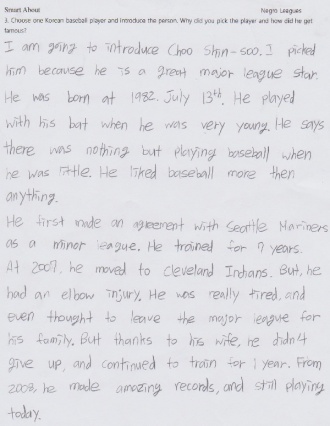 Smart About
Negro Leagues
3. Choose one Korean baseball player and introduce the person. Why did you pick the player and how did he get
famous?
I am going to introduce Choo Shin-soo. I picked
him because he is a great major league star.
He was born at 1982. July 13th. He played
with his bat when he was very young. He says
there was nothing but playing baseball when
he was little. He liked baseball more then
anything.
He first made an agreement with Seattle Mariners
as a minor league. He trained for 7 years.
At 2007, he moved to Cleveland Indians. But, he
had an elbow injury. He was really tired, and
even thought to leave the major league for
his family. But thanks to his wife, he didn't
give up, and continued to train for 1 year. From
2008, he made amazing records, and still playing
today.